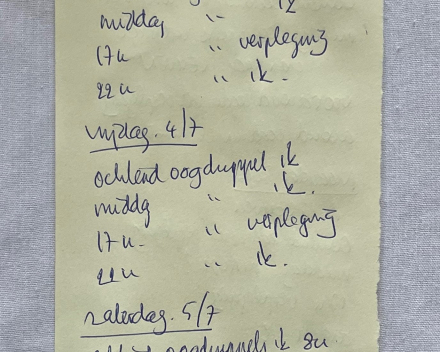 middag " ik
17u " verpleging
22u " ik.
vrijdag. 4/7
ochtend oogdruppel ik
middag " ik.
17u. " verpleging
22u " ik.
zaterdag. 5/7
oogdruppels ik 8u